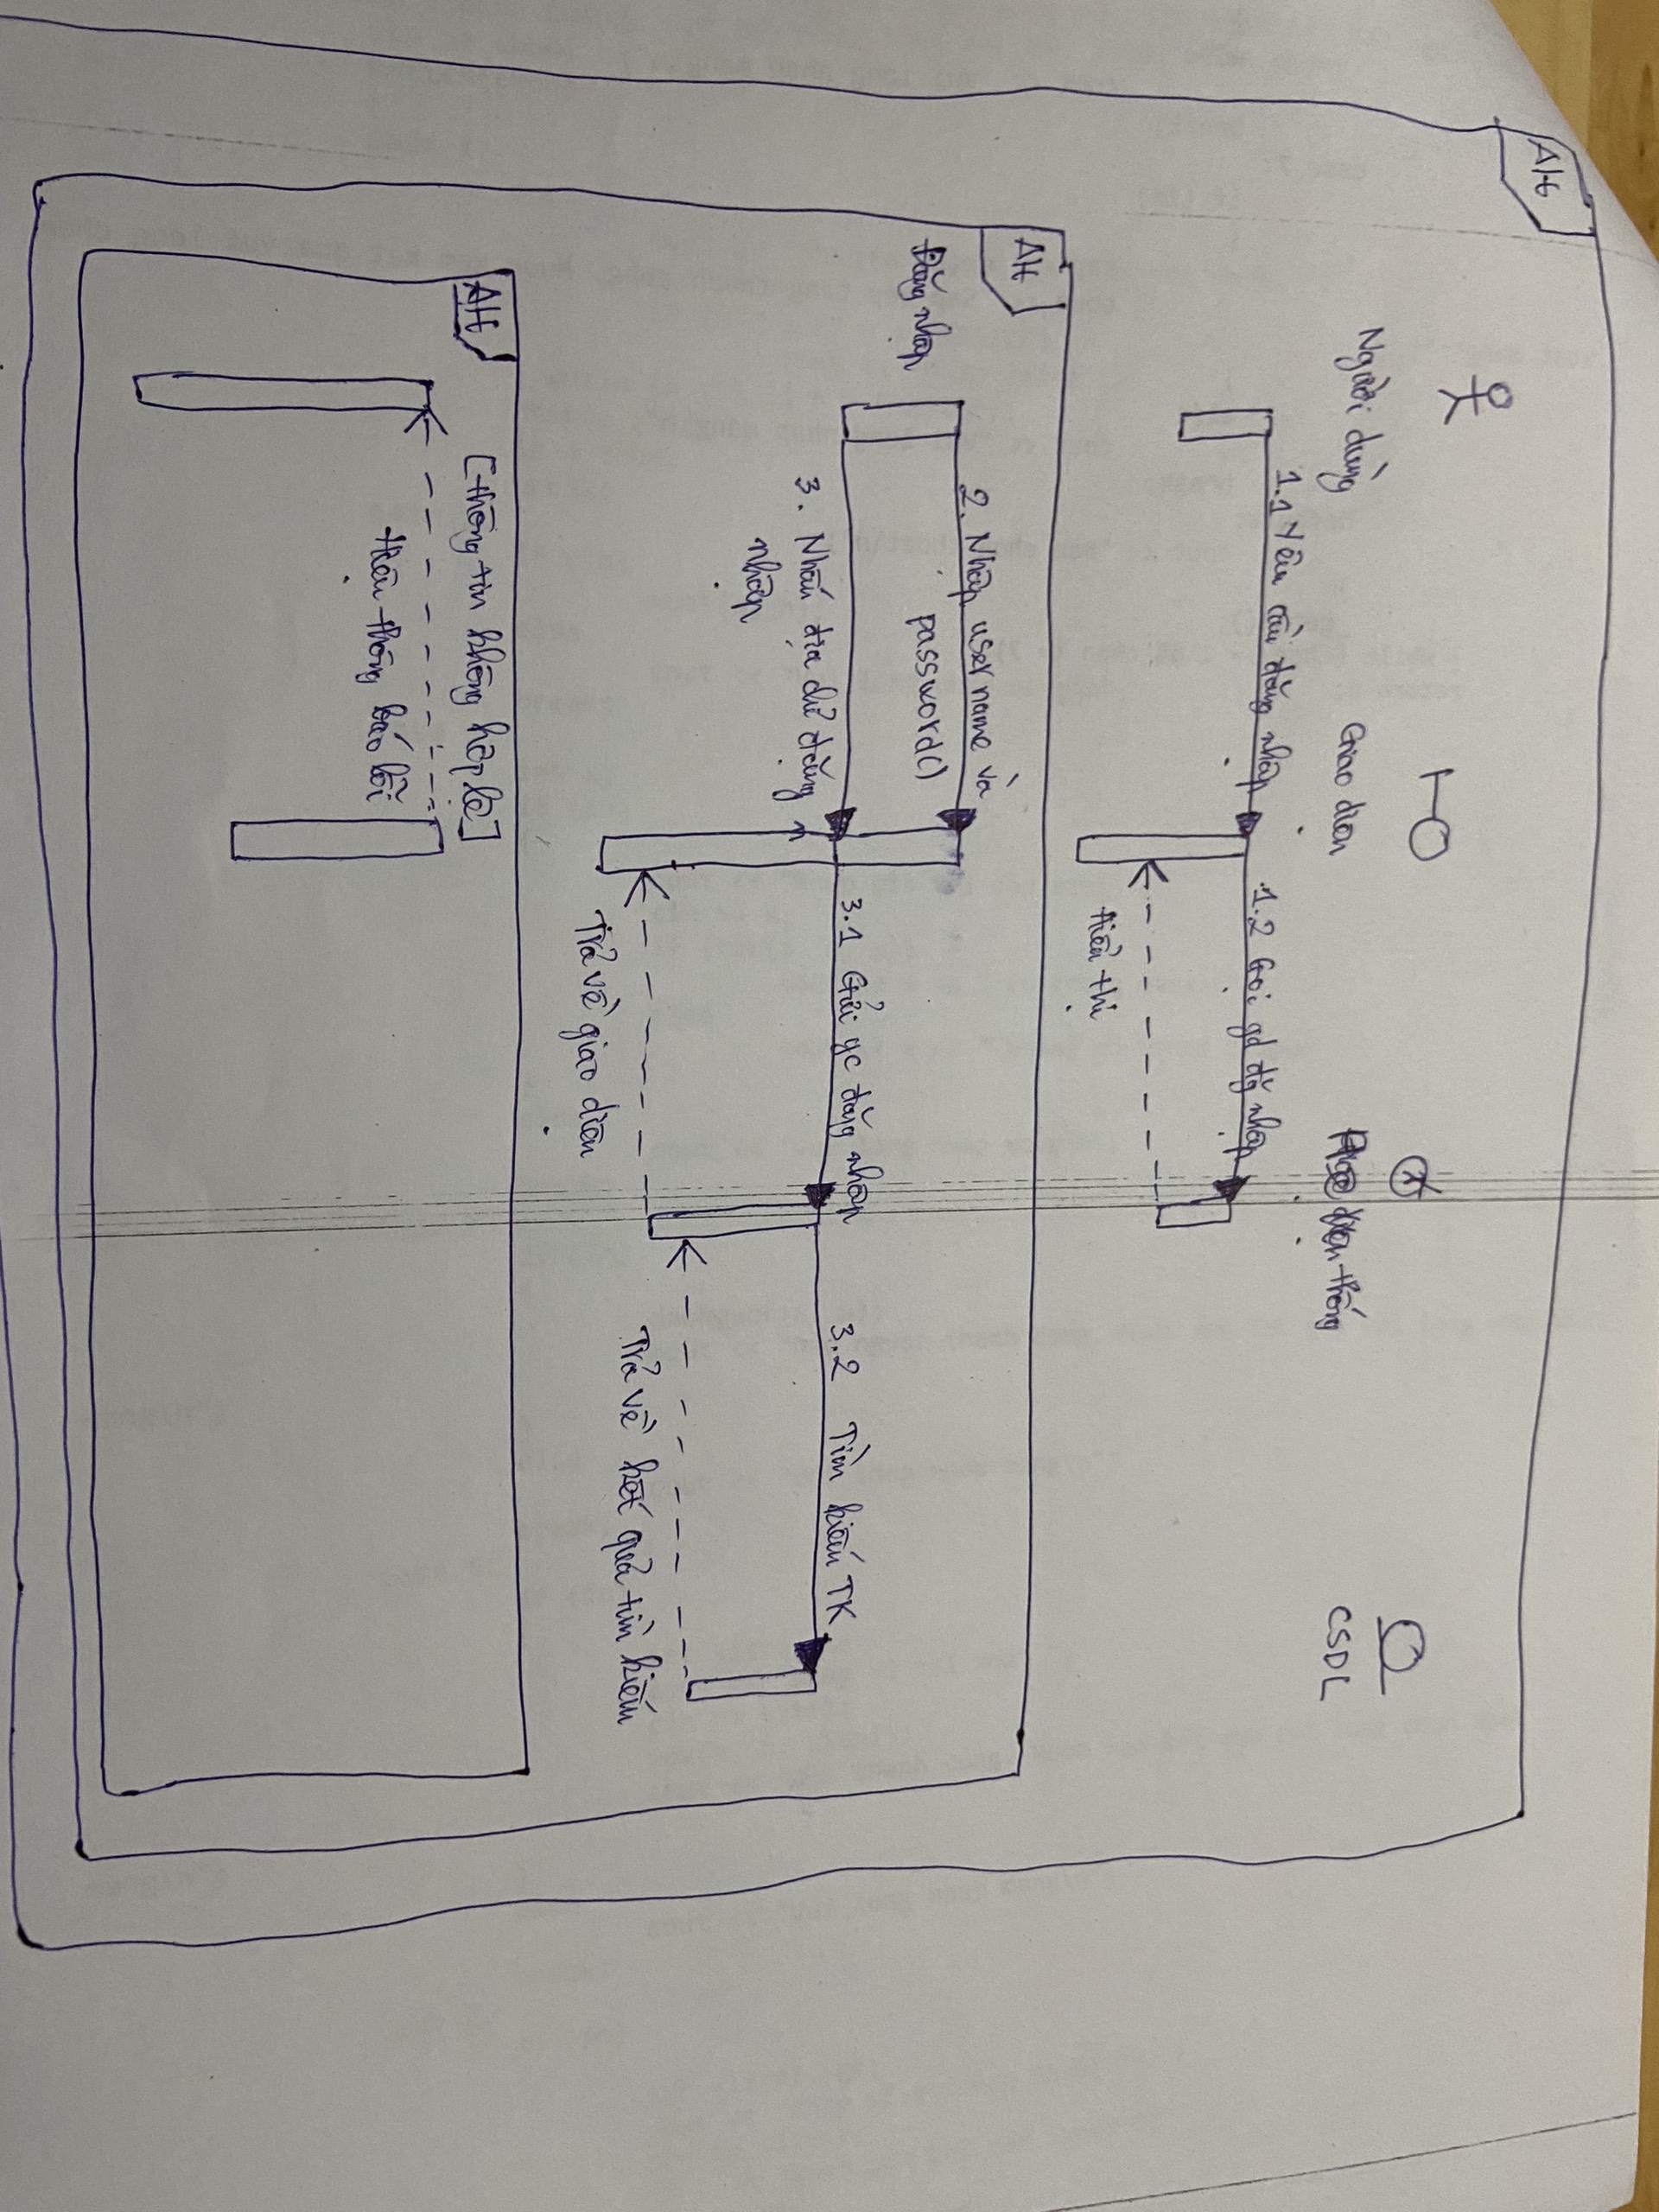 Alt
Người dùng
Giao diện
thống
CSDL
1.1 Yêu cầu đăng nhập
1.2 Gọi gd đg nhập
Hiển thị
Alt
Đăng nhập
2. Nhập username và
password()
3. Nhấn địa chỉ đăng
nhập
3.1 Gửi yc đăng nhập
3.2 Tìm kiếm TK
Trả về kết quả tìm kiếm
Trả về giao diện
Alt
[thông tin không hợp lệ]
Hiện thông báo lỗi